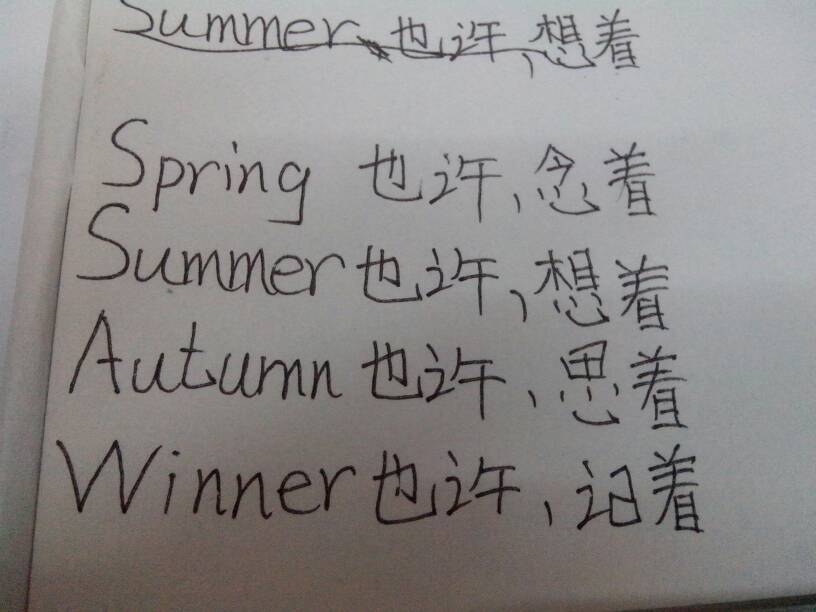 Summer 也许,想着
Spring 也许,念着
Summer 也许,想着
Autumn 也许,思着
Winner 也许,记着